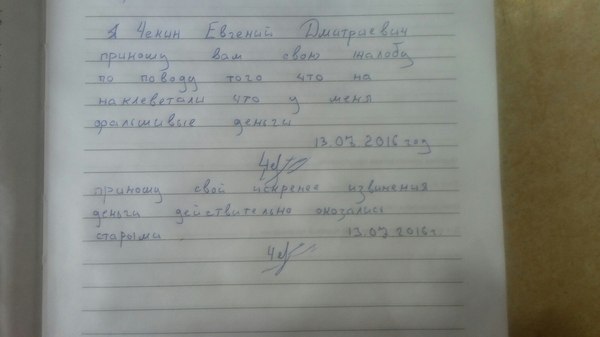 я Чекин Евгений Дмитриевич
приношу вам свою жалобу
по поводу того что на
наклеветали что у меня
фальшивые деньги
13.07 2016 год
приношу свой искренее извинения
деньги действительно оказались
старыми 13.07 2016г